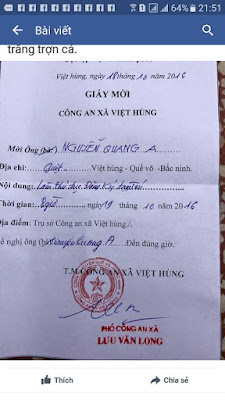 64% 21:51
Bài viết
trắng trợn cả.
Việt hùng, ngày 18 tháng 10 năm 2016
GIẤY MỜI
CÔNG AN XÃ VIỆT HÙNG
Mời Ông (bà) NGUYỄN QUANG A.
Địa chỉ: Guột Việt hùng - Quế võ - Bắc ninh.
Nội dung: Làm thủ tục Đăng ký tạm trú
Thời gian: ngày 19 10 2016
Địa điểm: Trụ sở Công an xã Việt hùng /.
ề nghị ông (bà) Nguyễn Quang A Đến đúng giờ.
T.M CÔNG AN XÃ VIỆT HÙNG
PHÓ CÔNG AN XÃ
LƯU VĂN LONG
Thích Chia sẻ